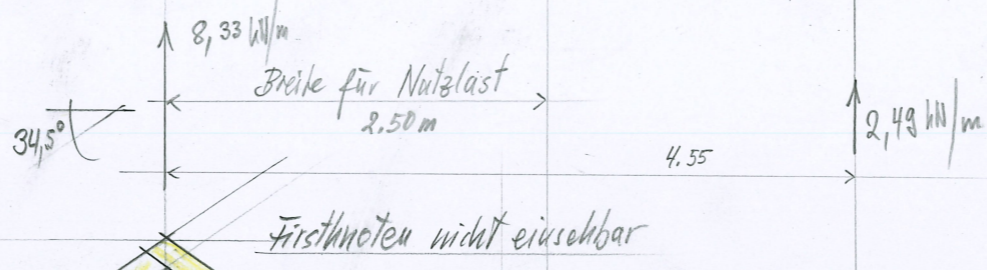 8,33 kN/m
Breite für Nutzlast
2.50 m
34,5°
2,49 kN/m
4.55
Firstknoten nicht einsehbar